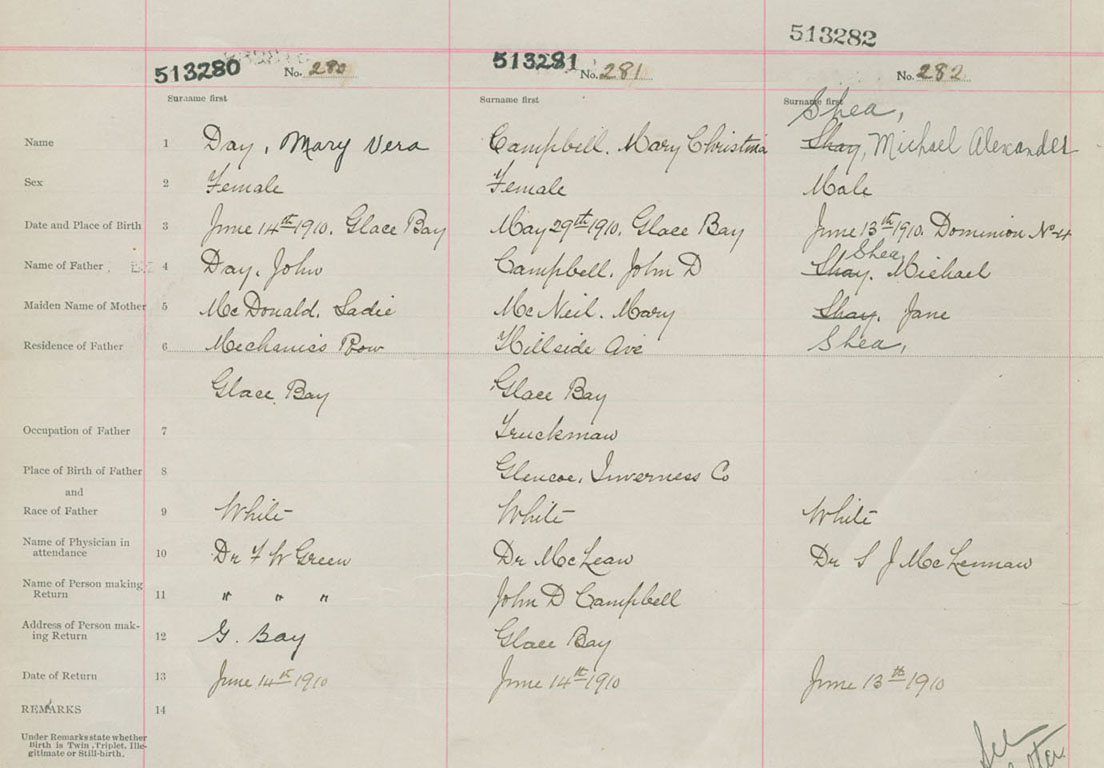 513280 No. 280 513281 No. 281 513282 No. 282
Surname first Surname first Surname first
Shea,
Name 1 Day, Mary Vera Campbell. Mary Christina Shay, Michael Alexander
Sex 2 Female Female Male
Date and Place of Birth 3 June 14th 1910. Glace Bay May 29th 1910. Glace Bay June 13th 1910. Dominion No 4
Shea
Name of Father 4 Day. John Campbell. John D Shay. Michael
Maiden Name of Mother 5 McDonald. Sadie McNeil. Mary Shay. Jane
Residence of Father 6 Mechanics Row Hillside Ave Shea,
Glace Bay Glace Bay
Occupation of Father 7 Truckman
Place of Birth of Father 8 Glencoe, Inverness Co
and
Race of Father 9 White White White
Name of Physician in
attendance 10 Dr F W Green Dr McLean Dr S J McLennan
Name of Person making
Return 11 " " " John D Campbell
Address of Person mak-
ing Return 12 G. Bay Glace Bay
Date of Return 13 June 14th 1910 June 14th 1910 June 13th 1910
REMARKS 14
Under Remarks state whether
Birth is Twin, Triplet, Ille-
gitimate or Still-birth.
See